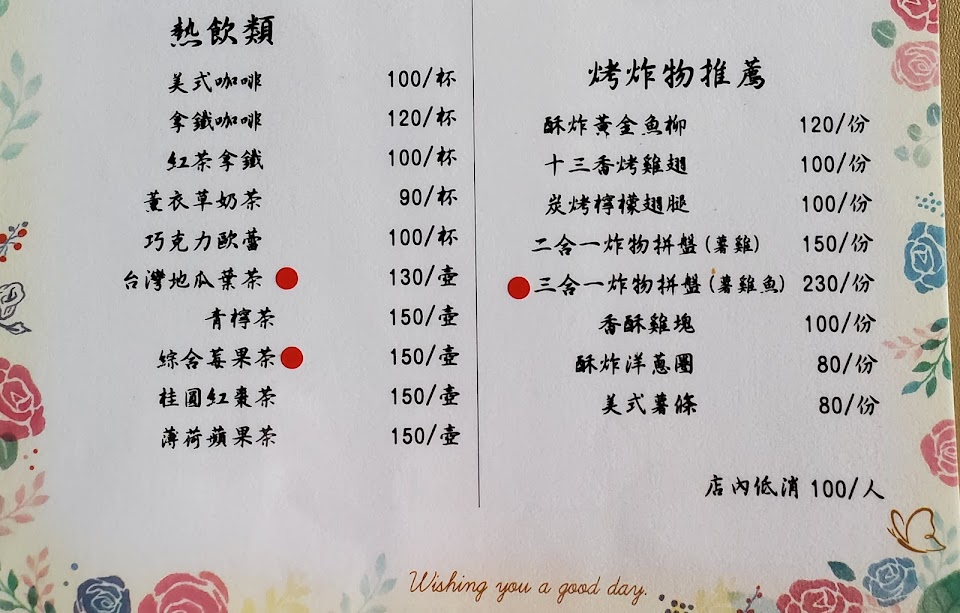 熱飲類
美式咖啡 100/杯
拿鐵咖啡 120/杯
紅茶拿鐵 100/杯
薰衣草奶茶 90/杯
巧克力歐蕾 100/杯
台灣地瓜葉茶 130/壺
青檸茶 150/壺
綜合莓果茶 150/壺
桂圓紅棗茶 150/壺
薄荷蘋果茶 150/壺
烤炸物推薦
酥炸黃金魚柳 120/份
十三香烤雞翅 100/份
炭烤檸檬翅腿 100/份
二合一炸物拼盤(薯雞) 150/份
三合一炸物拼盤(薯雞魚) 230/份
香酥雞塊 100/份
酥炸洋蔥圈 80/份
美式薯條 80/份
店內低消 100/人
Wishing you a good day.